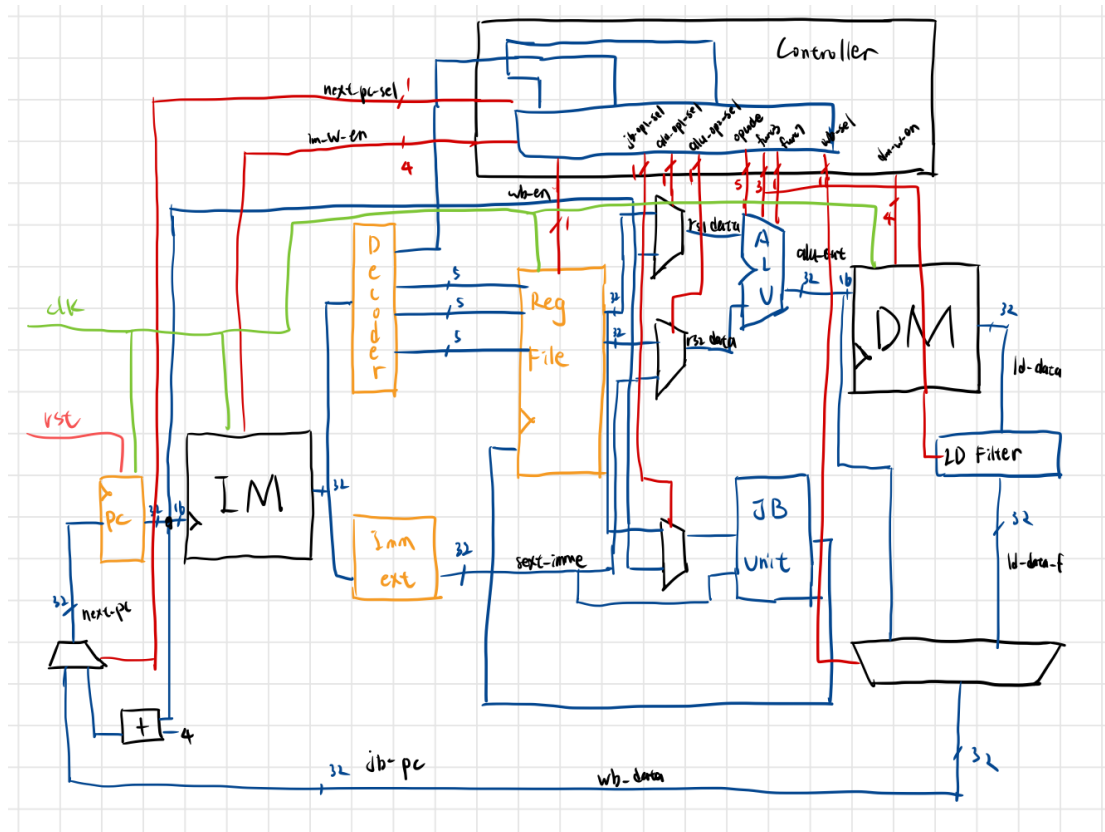 Controller
next-pc-sel
1
im-w-en
4
jb-op1-sel
alu-op1-sel
alu-op2-sel
opcode
func3
func7
wb-sel
dm-w-en
wb-en
1
1
1
1
5
3
1
1
4
clk
rst
Decoder
5
5
5
Reg
File
32
32
rs1 data
rs2 data
ALU
alu-out
32
16
DM
32
ld-data
LD Filter
32
ld-data-f
pc
32
16
IM
32
Imm
ext
32
sext-imme
JB
Unit
32
next-pc
+
4
32
jb-pc
wb_data
32